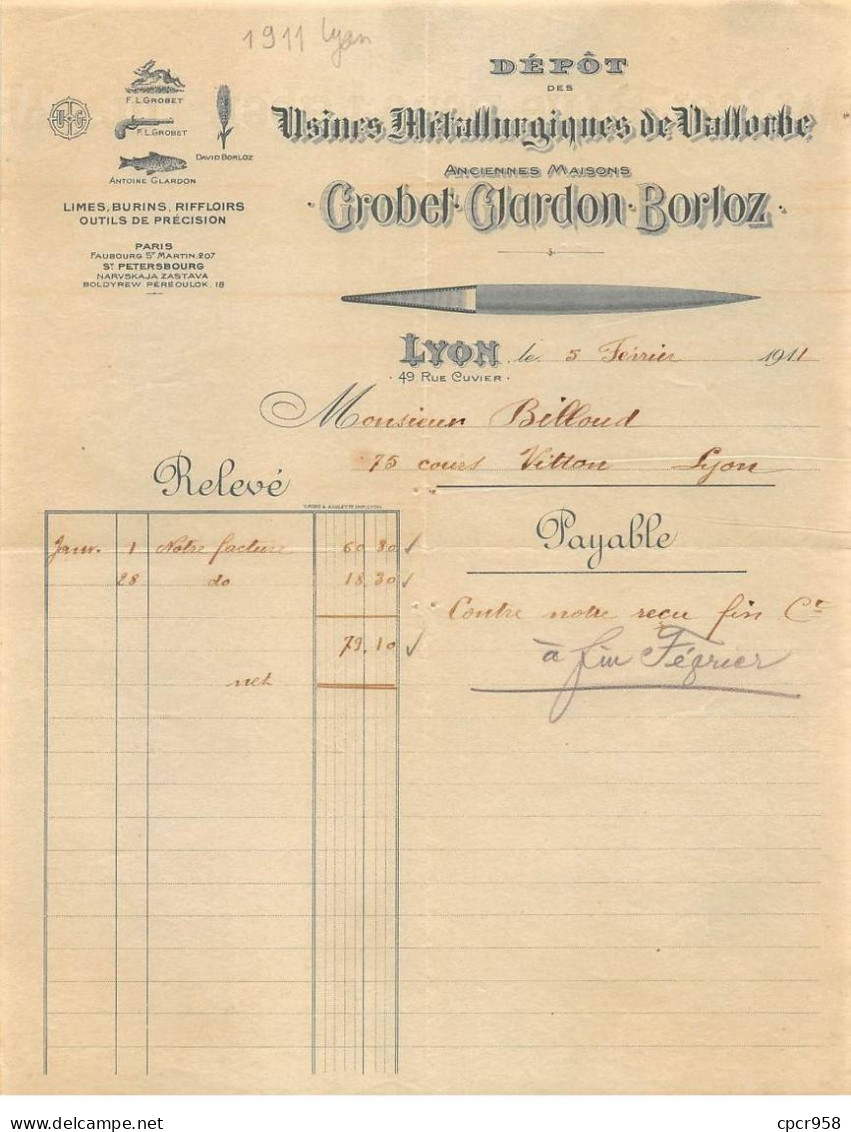 1911 Lyon
DÉPÔT
DES
Usines Métallurgiques de Vallorbe
ANCIENNES MAISONS
Grobet · Glardon · Borloz
F.L.GROBET
F.L.GROBET
DAVID BORLOZ
ANTOINE GLARDON
LIMES, BURINS, RIFFLOIRS
OUTILS DE PRÉCISION
PARIS
FAUBOURG ST MARTIN. 207
ST PETERSBOURG
NARVSKAJA ZASTAVA
BOLDYREW PÉRÉOULOK. 18
LYON, le 5 Février 1911
· 49 RUE CUVIER ·
Monsieur Billoud
75 cours Vitton Lyon
Relevé
Payable
Janv. 1 Notre facture 60 80
28 do 18,30
79,10
net
Contre notre reçu fin Ct
à fin Février
© www.delcampe.net
cpcr958